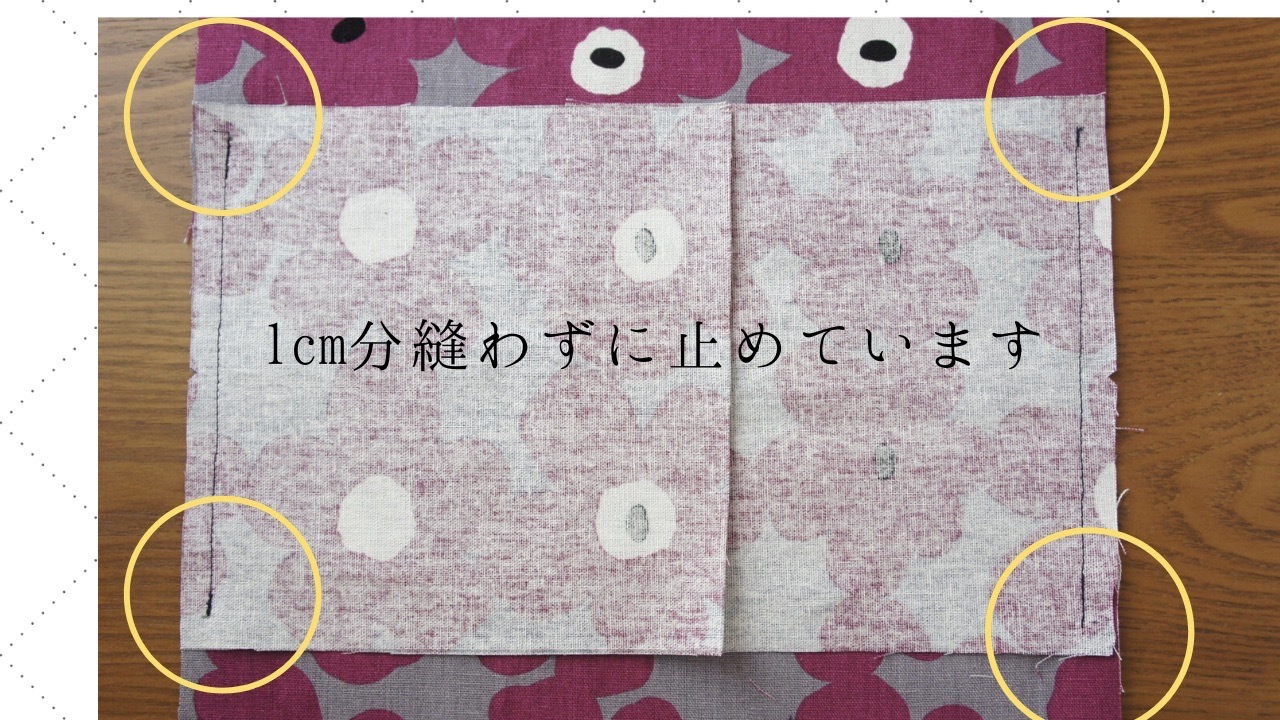 1cm分縫わずに止めています